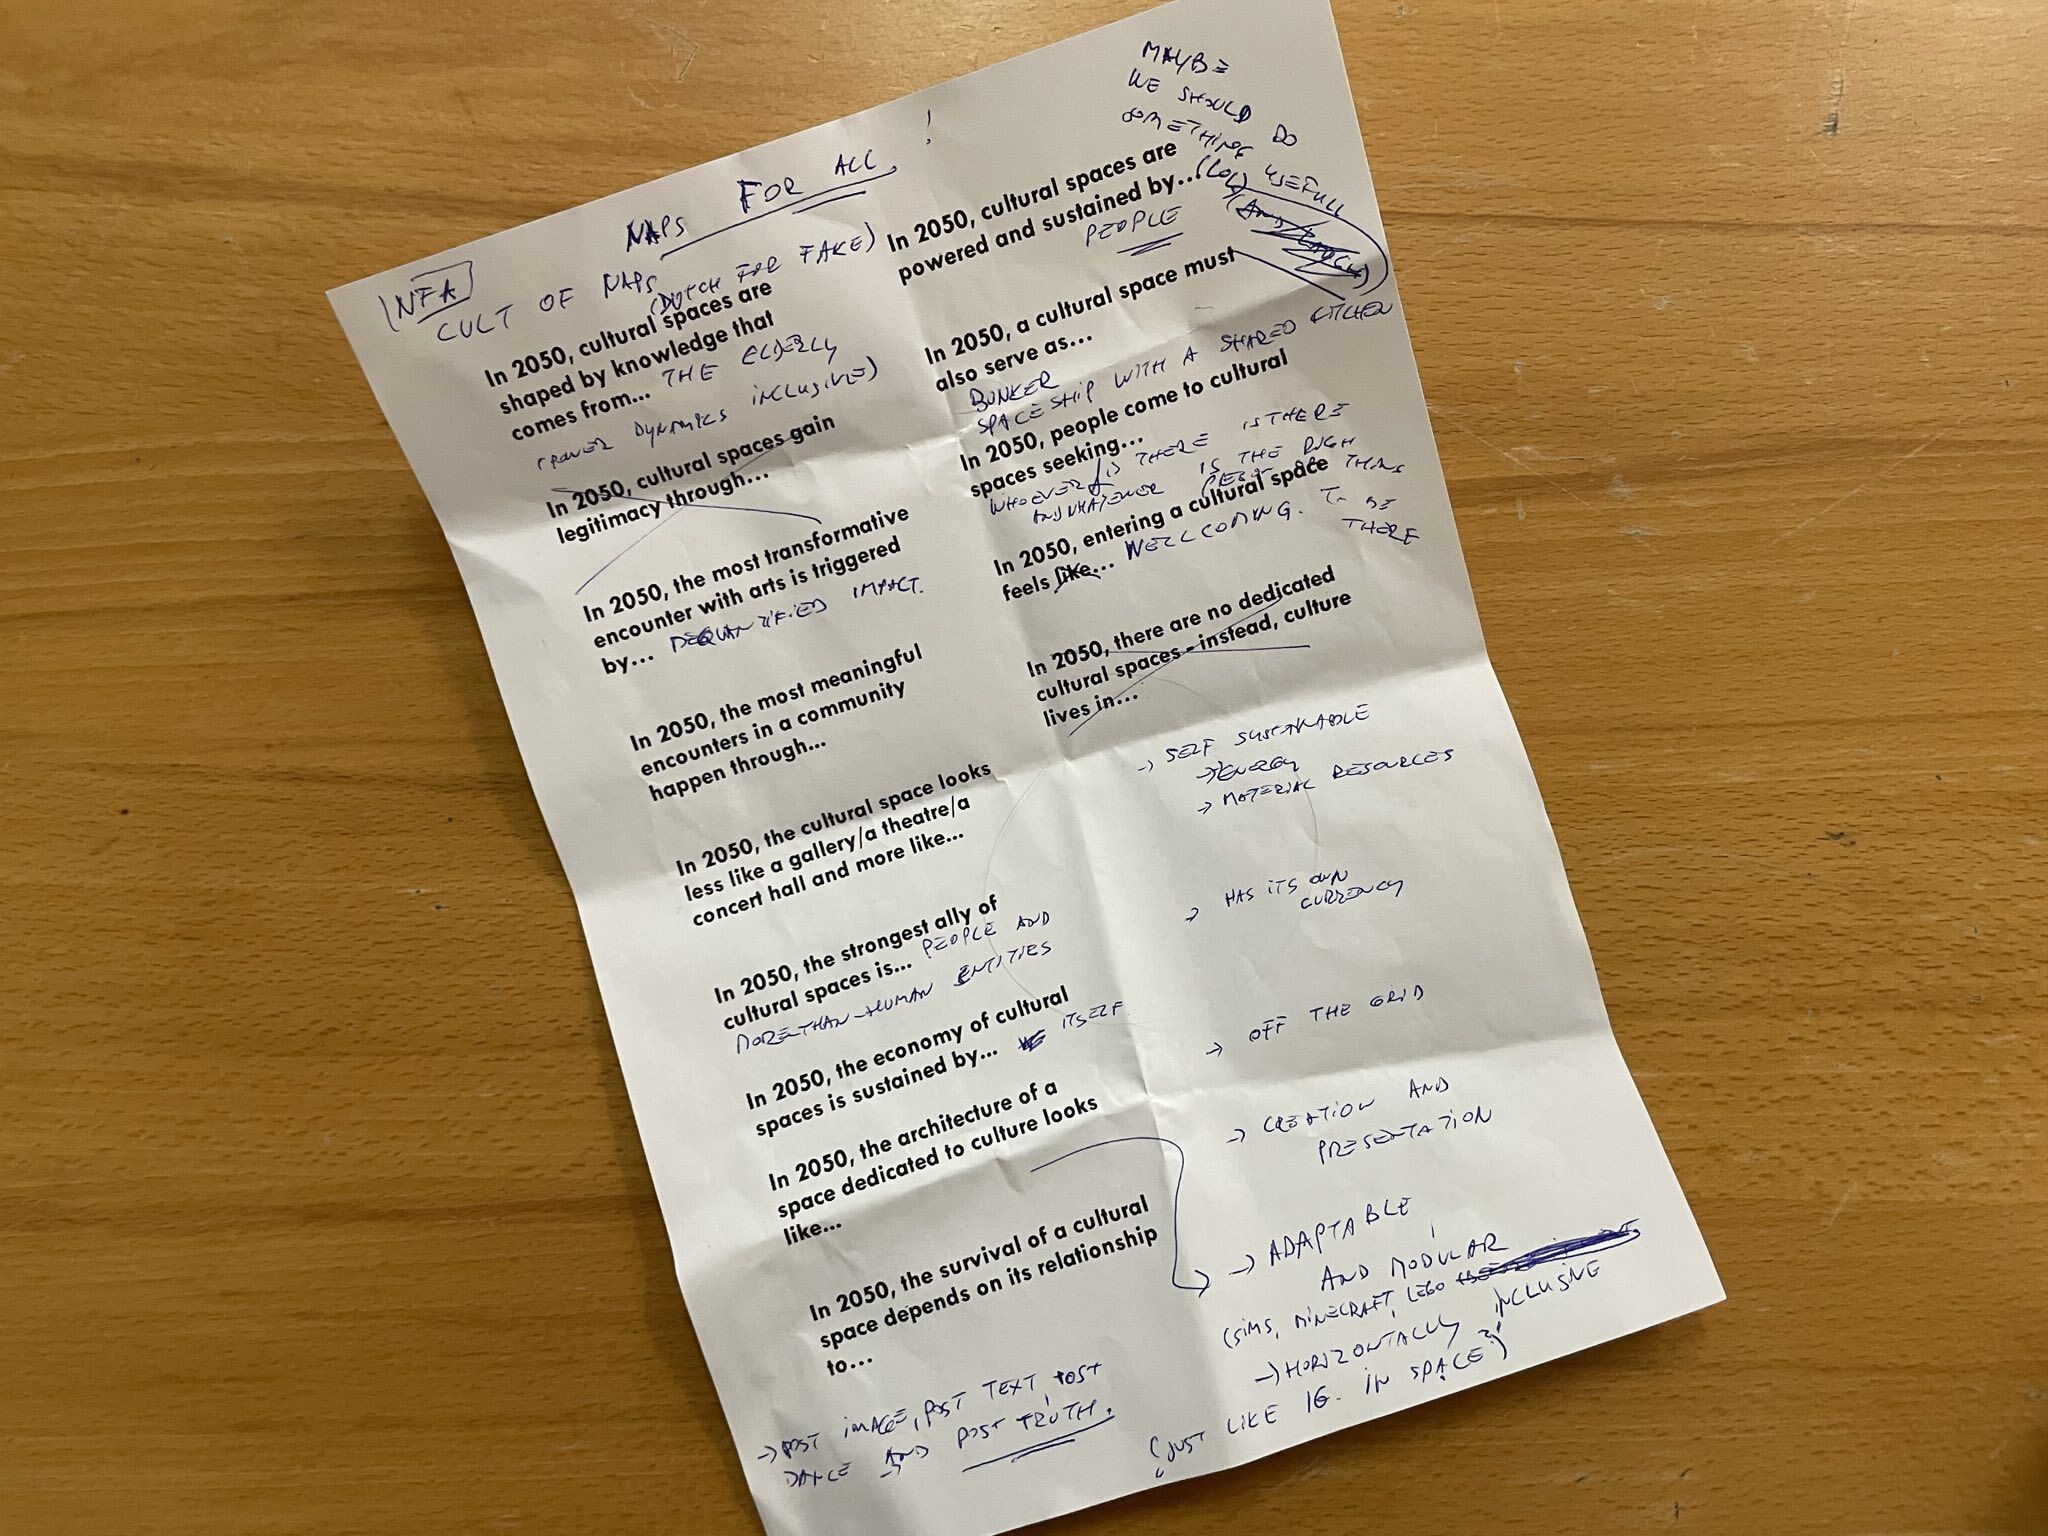 NAPS FOR ALL !
(NFA)
CULT OF NAPS
(DUTCH FOR FAKE)
In 2050, cultural spaces are
shaped by knowledge that
comes from... THE ELDERLY
(POWER DYNAMICS INCLUSIVE)
In 2050, cultural spaces gain
legitimacy through...
In 2050, the most transformative
encounter with arts is triggered
by... DEQUANTIFIED IMPACT.
In 2050, the most meaningful
encounters in a community
happen through...
In 2050, the cultural space looks
less like a gallery/a theatre/a
concert hall and more like...
In 2050, the strongest ally of
cultural spaces is... PEOPLE AND
MORE-THAN-HUMAN ENTITIES
In 2050, the economy of cultural
spaces is sustained by... ITSELF.
In 2050, the architecture of a
space dedicated to culture looks
like...
In 2050, the survival of a cultural
space depends on its relationship
to...
→ POST IMAGE, POST TEXT, POST
DANCE AND POST TRUTH.
MAYBE
WE SHOULD DO
SOMETHING USEFULL
(LOL)
In 2050, cultural spaces are
powered and sustained by...
PEOPLE
In 2050, a cultural space must
also serve as...
BUNKER
SPACESHIP WITH A SHARED KITCHEN
In 2050, people come to cultural
spaces seeking...
WHOEVER IS THERE IS THERE
AND WHATEVER IS THE RIGH
THING
TO BE
THERE
In 2050, entering a cultural space
feels like... WELLCOMING.
In 2050, there are no dedicated
cultural spaces - instead, culture
lives in...
→ SELF SUSTAINABLE
→ ENERGY
→ MATERIAL RESOURCES
→ HAS ITS OWN
CURRENCY
→ OFF THE GRID
→ CREATION AND
PRESENTATION
→ ADAPTABLE
AND MODULAR
(SIMS, MINECRAFT, LEGO
→ HORIZONTALLY INCLUSIVE
(JUST LIKE IG. IN SPACE?)